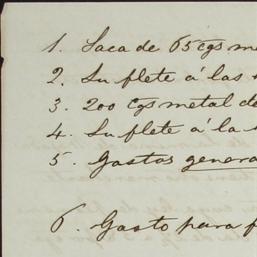 1. Saca de 65 cgs me
2. Su flete á las
3. 200 cgs metal de
4. Su flete á la
5. Gastos genera
6. Gasto para f